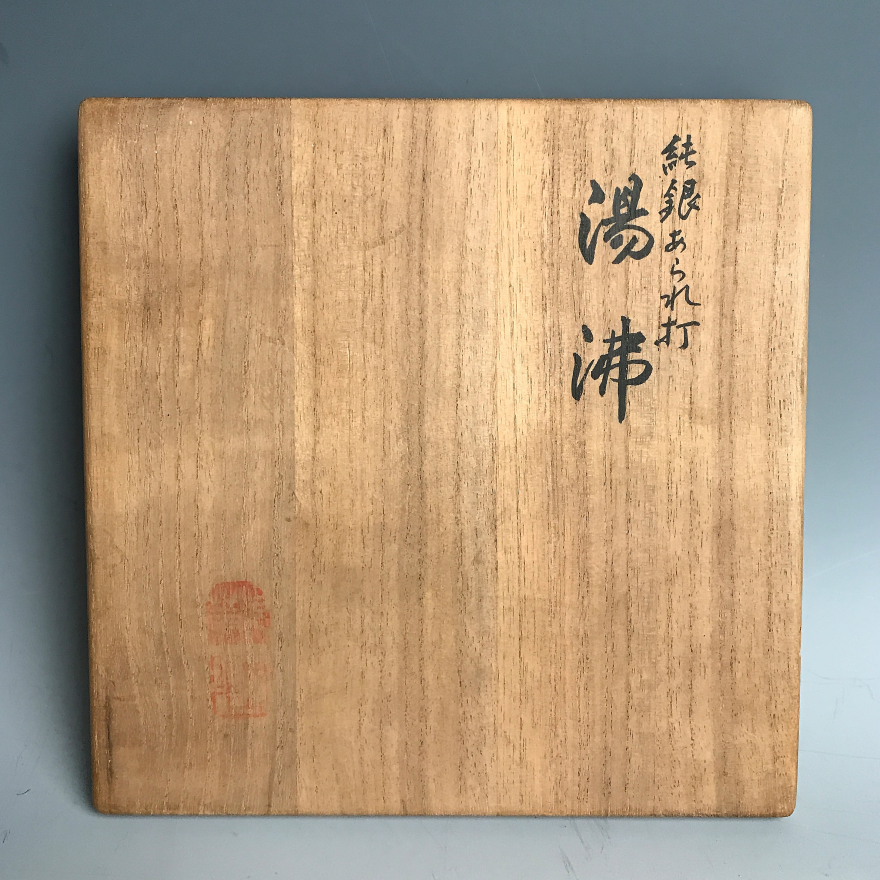 純銀あられ打
湯沸